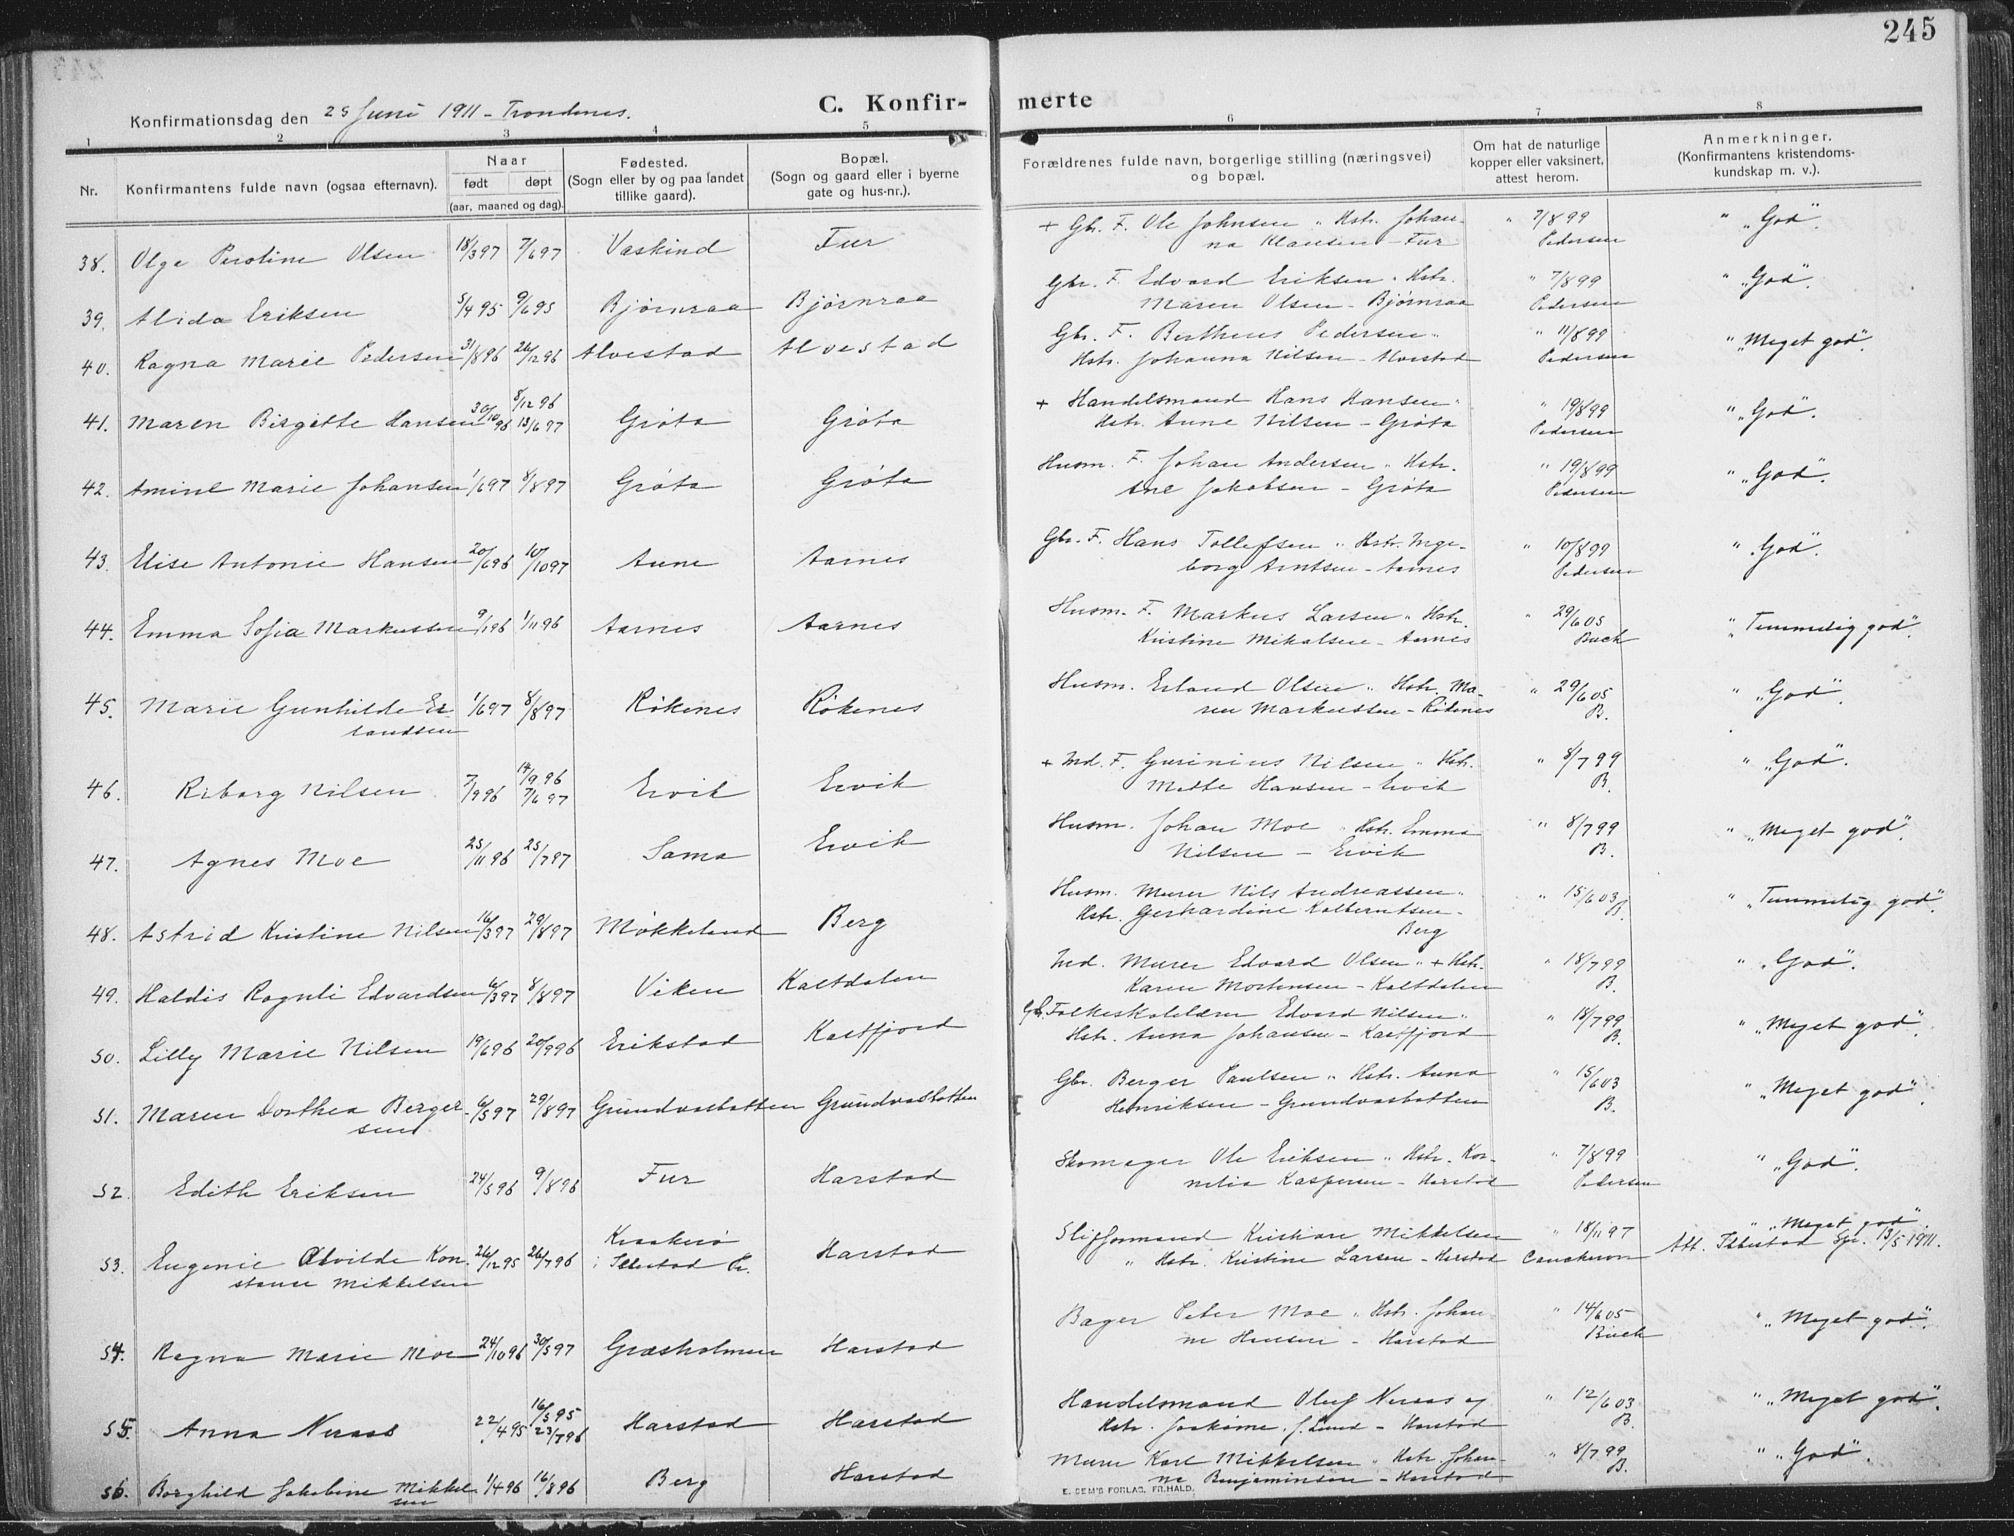 245
Konfirmationsdag den 25 Juni 1911 - Trondenes.
C. Konfir- merte
1 2 3 4 5 6 7 8
Nr. Konfirmantens fulde navn (ogsaa efternavn). Naar født døpt (aar, maaned og dag). Fødested. (Sogn eller by og paa landet tillike gaard). Bopæl. (Sogn og gaard eller i byerne gate og hus-nr.). Forældrenes fulde navn, borgerlige stilling (næringsvei) og bopæl. Om hat de naturlige kopper eller vaksinert, attest herom. Anmerkninger. (Konfirmantens kristendoms-kundskap m. v.).
38. Olga Peroline Olsen 18/3 97 7/6 97 Vaskind Fur + Gbr. F. Ole Johnsen " Hstr. Johan- " 7/8 99 " "God".
na Klausen - Fur Pedersen
39. Alida Eriksen 5/4 95 9/6 95 Bjørnraa Bjørnraa Gbr. F. Edvard Eriksen " Hstr. " 7/8 99 " "God".
Maren Olsen - Bjørnraa Pedersen
40. Ragna Marie Pedersen 31/8 96 26/12 96 Alvestad Alvestad Gbr. F. Bertheus Pedersen " " 11/8 99 " "Meget god".
Hstr. Johanna Nilsen - Alvestad Pedersen
41. Maren Birgitte Hansen 30/10 96 8/12 96 13/6 97 Grøta Grøta + Handelsmand Hans Hansen " " 19/8 99 " "God".
Hstr. Anne Nilsen - Grøta Pedersen
42. Amine Marie Johansen 1/6 97 8/8 97 Grøta Grøta Husm. F. Johan Andersen " Hstr. " 19/8 99 " "God".
Ane Jakobsen - Grøta Pedersen
43. Elise Antonie Hansen 20/6 96 10/10 97 Aune Aarnes Gbr. F. Hans Tollefsen " Hstr. Inge- " 10/8 99 " "God".
borg Arntsen - Aarnes Pedersen
44. Emma Sofia Markussen 9/1 96 1/11 96 Aarnes Aarnes Husm. F. Markus Larsen " Hstr. " 29/6 05 " "Temmelig god".
Kristine Mikalsen - Aarnes Buck
45. Marie Gunhilde Er 1/6 97 8/8 97 Røkenes Røkenes Husm. Erland Olsen " Hstr. Ma- " 29/6 05 " "God".
landsen ren Markussen - Røkenes B.
46. Riborg Nilsen 7/9 96 14/9 96 7/6 97 Ervik Ervik + Ind. F. Gurinius Nilsen " Hstr. " 8/7 99 " "God".
Mette Hansen - Ervik B.
47. Agnes Moe 25/11 96 25/7 97 Sama Ervik Husm. Johan Moe " Hstr. Emma " 8/7 99 " "Meget god".
Nilsen - Ervik B.
48. Astrid Kristine Nilsen 16/3 97 29/8 97 Møkkeland Berg Husm. Murer Nils Andreassen " " 15/6 03 " "Temmelig god".
Hstr. Gerhardine Kolberntsen - B.
Berg
49. Haldis Ragnli Edvardsen 6/3 97 8/8 97 Viken Kaltdalen Ind. Murer Edvard Olsen " + Hstr. " 18/7 99 " "God".
Karen Mortensen - Kaltdalen B.
50. Lilly Marie Nilsen 19/6 96 20/9 96 Erikstad Kastfjord Gbr. Folkeskolelærer Edvard Nilsen " " 18/7 99 " "Meget god".
Hstr. Anna Johansen - Kastfjord B.
51. Maren Dorthea Berger- 6/5 97 29/8 97 Grundvasbotten Grundvasbotten Gbr. Berger Paulsen " Hstr. Anna " 15/6 03 " "Meget god".
sen Henriksen - Grundvasbotten B.
52. Edith Eriksen 24/5 96 9/8 96 Fur Harstad Skomager Ole Eriksen " Hstr. Kor- " 7/8 99 " "God".
nelia Kaspersen - Harstad Pedersen
53. Eugenie Alvilde Kon- 26/12 95 26/7 96 Kraakerø Harstad Slipformand Kristian Mikkelsen " 18/11 97 " "Meget god"
stance Mikkelsen i Ibbestad P. " Hstr. Kristine Larsen - Harstad Att. Ibbestad Spr. 13/5 1911.
54. Ragna Marie Moe 24/10 96 30/5 97 Græsholmen Harstad Bager Peter Moe " Hstr. Johan- " 14/6 05 " "Meget god".
ne Hansen - Harstad Buck
55. Anna Neraas 22/4 95 16/5 95 23/7 96 Harstad Harstad Handelsmand Oluf Neraas og " 12/6 03 " "Meget god".
Hstr. Joakime f. Lund - Harstad B.
56. Borghild Jakobine Mikkel 1/4 96 16/8 96 Berg Harstad Murer Karl Mikkelsen " Hstr. Johan- " 8/7 99 " "God".
sen ne Benjaminsen - Harstad B.
E. SEM'S FORLAG, FR.HALD.